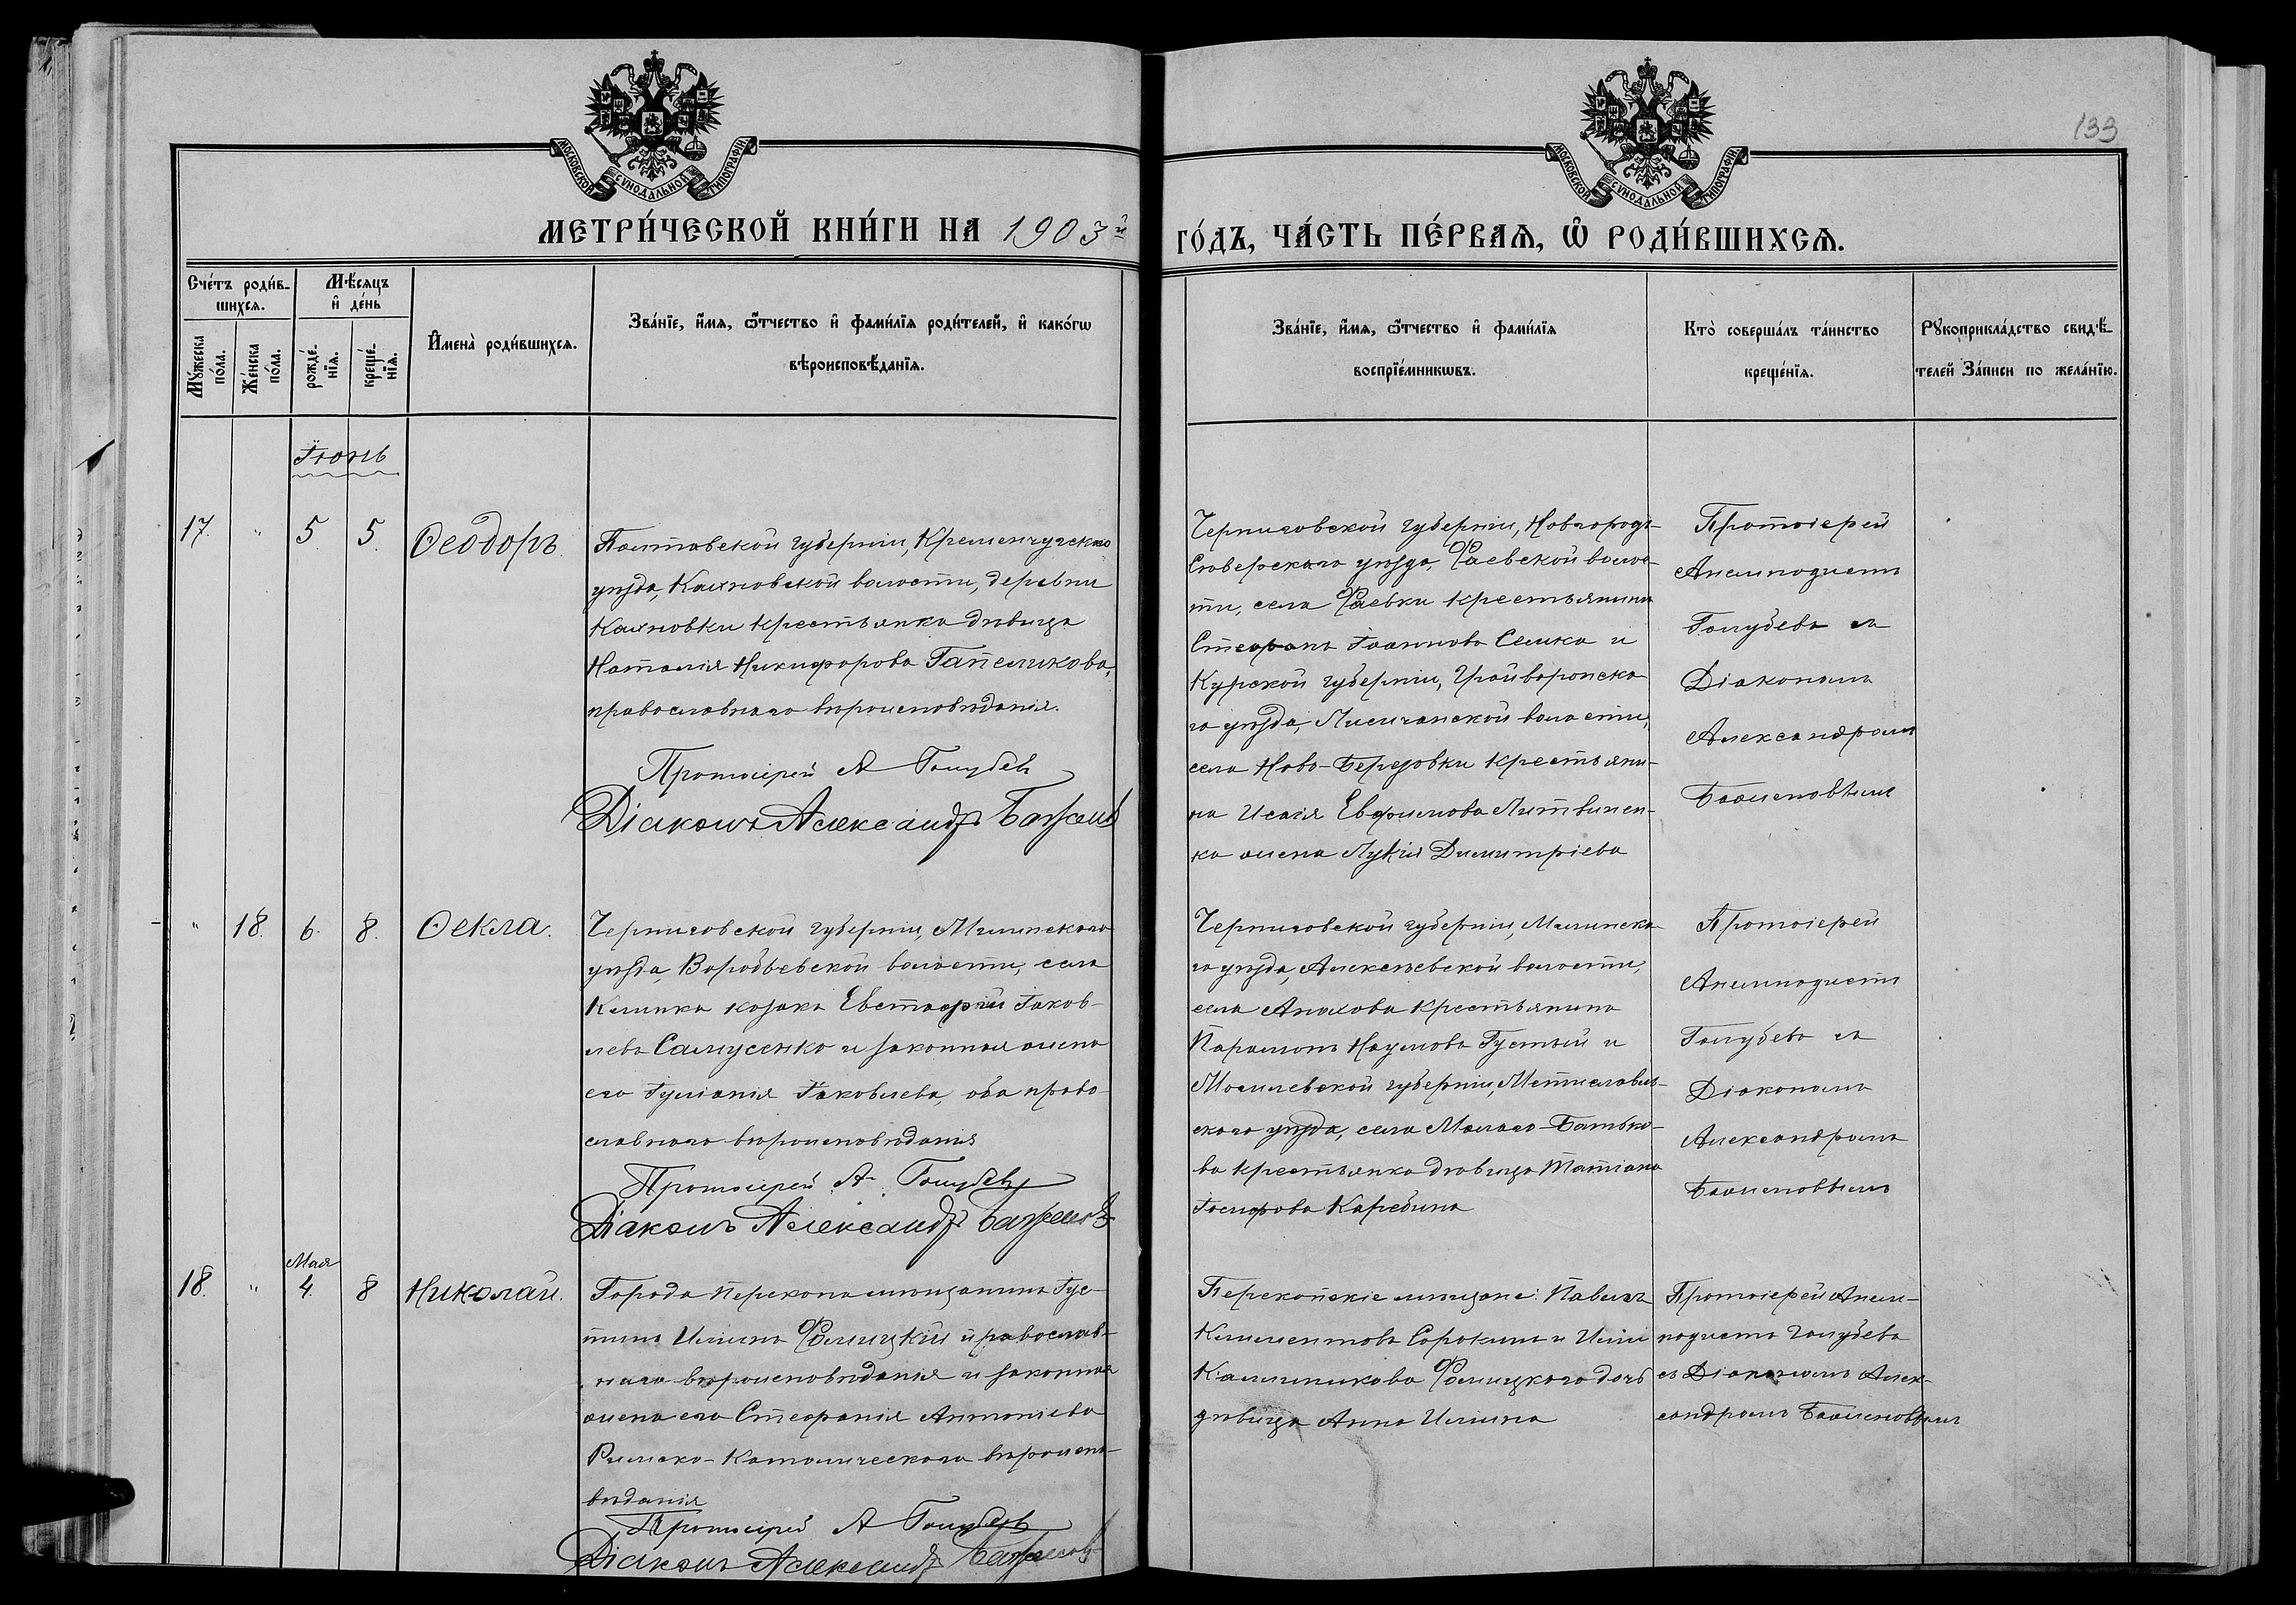 133
МОСКОВСКОЙ СѴНОДАЛЬНОЙ ТИПОГРАФІИ
МОСКОВСКОЙ СѴНОДАЛЬНОЙ ТИПОГРАФІИ
МЕТРИ́ЧЕСКОЙ КНИ́ГИ НА 1903й
ГО́ДЪ, ЧА́СТЬ ПЕ́РВАѦ, Ѽ РОДИ́ВШИХСѦ.
Сче́тъ роди́в-
шихсѧ.
Мꙋ́жеска по́ла.
Же́нска по́ла.
Мѣ́сяцъ
и҆ де́нь
рожде́-
нїѧ.
креще́-
нїѧ.
И҆мена̀ роди́вшихсѧ.
Зва́нїе, и҆́мѧ, ѻ҆́тчество и҆ фами́лїѧ роди́телей, и҆ како́гѡ
вѣроисповѣ́данїѧ.
Зва́нїе, и҆́мѧ, ѻ҆́тчество и҆ фами́лїѧ
воспрїе́мникѡвъ.
Кто̀ соверша́лъ та́инство
креще́нїѧ.
Рꙋкоприкла́дство свидѣ́-
телей За́писи по жела́нїю.
Іюнь
17. " 5. 5. Ѳеодоръ.
Полтавской губерніи, Кременчугскаго
уѣзда, Кахновской волости, деревни
Кахновки крестьянка дѣвица
Наталія Никифорова Гапеликова,
православнаго вѣроисповѣданія.
Протоіерей А Голубевъ
Діаконъ Александръ Баженовъ
Черниговской губерніи, Новгородъ-
Сѣверскаго уѣзда, Фаевской волос-
ти, села Фаевки крестьянинъ
Стефанъ Іоанновъ Селика и
Курской губерніи, Грайворонска-
го уѣзда, Лисичанской волости,
села Ново-Березовки крестьяни-
на Исаія Евфимова Литвинен-
ко жена Лукія Димитріева
Протоіерей
Анемподистъ
Голубевъ съ
Діакономъ
Александромъ
Баженовымъ
" 18. 6. 8. Ѳекла.
Черниговской губерніи, Мглинскаго
уѣзда, Воробьевской волости, села
Клинка козакъ Евстафій Іаков-
левъ Самусенко и законная жена
его Іуліанія Іаковлева, оба право-
славнаго вѣроисповѣданія
Протоіерей А. Голубевъ
Діаконъ Александръ Баженовъ
Черниговской губерніи, Мглинска-
го уѣзда, Алексѣевской волости,
села Анахова крестьянинъ
Парамонъ Наумовъ Густый и
Могилевской губерніи, Мстиславль-
скаго уѣзда, села Малаго-Батько-
ва крестьянка дѣвица Татіана
Іосифова Каребина
Протоіерей
Анемподистъ
Голубевъ съ
Діакономъ
Александромъ
Баженовымъ
Мая
18. " 4. 8 Николай.
Города Перекопа мѣщанинъ Іус-
тинъ Ильинъ Фолицкій православ-
наго вѣроисповѣданія и законная
жена его Стефанія Антоніева
Римско-Католическаго вѣроиспо-
вѣданія
Протоіерей А Голубевъ
Діаконъ Александръ Баженовъ
Перекопскіе мѣщане: Павелъ
Климентовъ Сорокинъ и Иліи
Каллиникова Фолицкаго дочь
дѣвица Анна Ильина
Протоіерей Анем-
подистъ Голубевъ
съ Діакономъ Алек-
сандромъ Баженовымъ